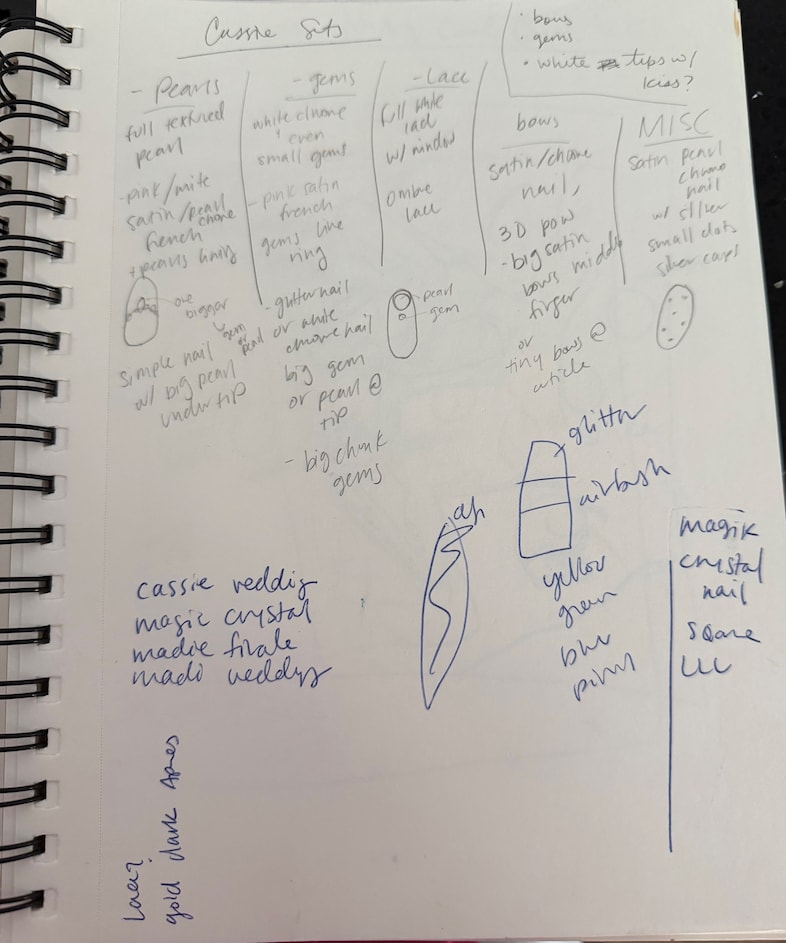 Cassie Sets
• bows
• gems
• white tips w/
kiss?
- Pearls
full textured
pearl
- pink/white
satin/pearl
chrome
french
+ pearls
one
bigger
gem
or
pearl
simple nail
w/ big pearl
under tip
- gems
white chrome
+ even
small gems
- pink satin
french
gems line
ring
- glitter nail
or white
chrome nail
big gem
or pearl @
tip
- big chunk
gems
- Lace
full white
lace
w/ window
ombre
lace
pearl
gem
bows
satin/chrome
nail,
3D bow
- big satin
bows middle
finger
or
tiny bows @
cuticle
MISC
satin pearl
chrome
nail
w/ silver
small dots
silver caps
glitter
airbush
yellow
green
blue
magik
crystal
nail
square
cassie
magic crystal
madie
madi
Lace?
gold dark